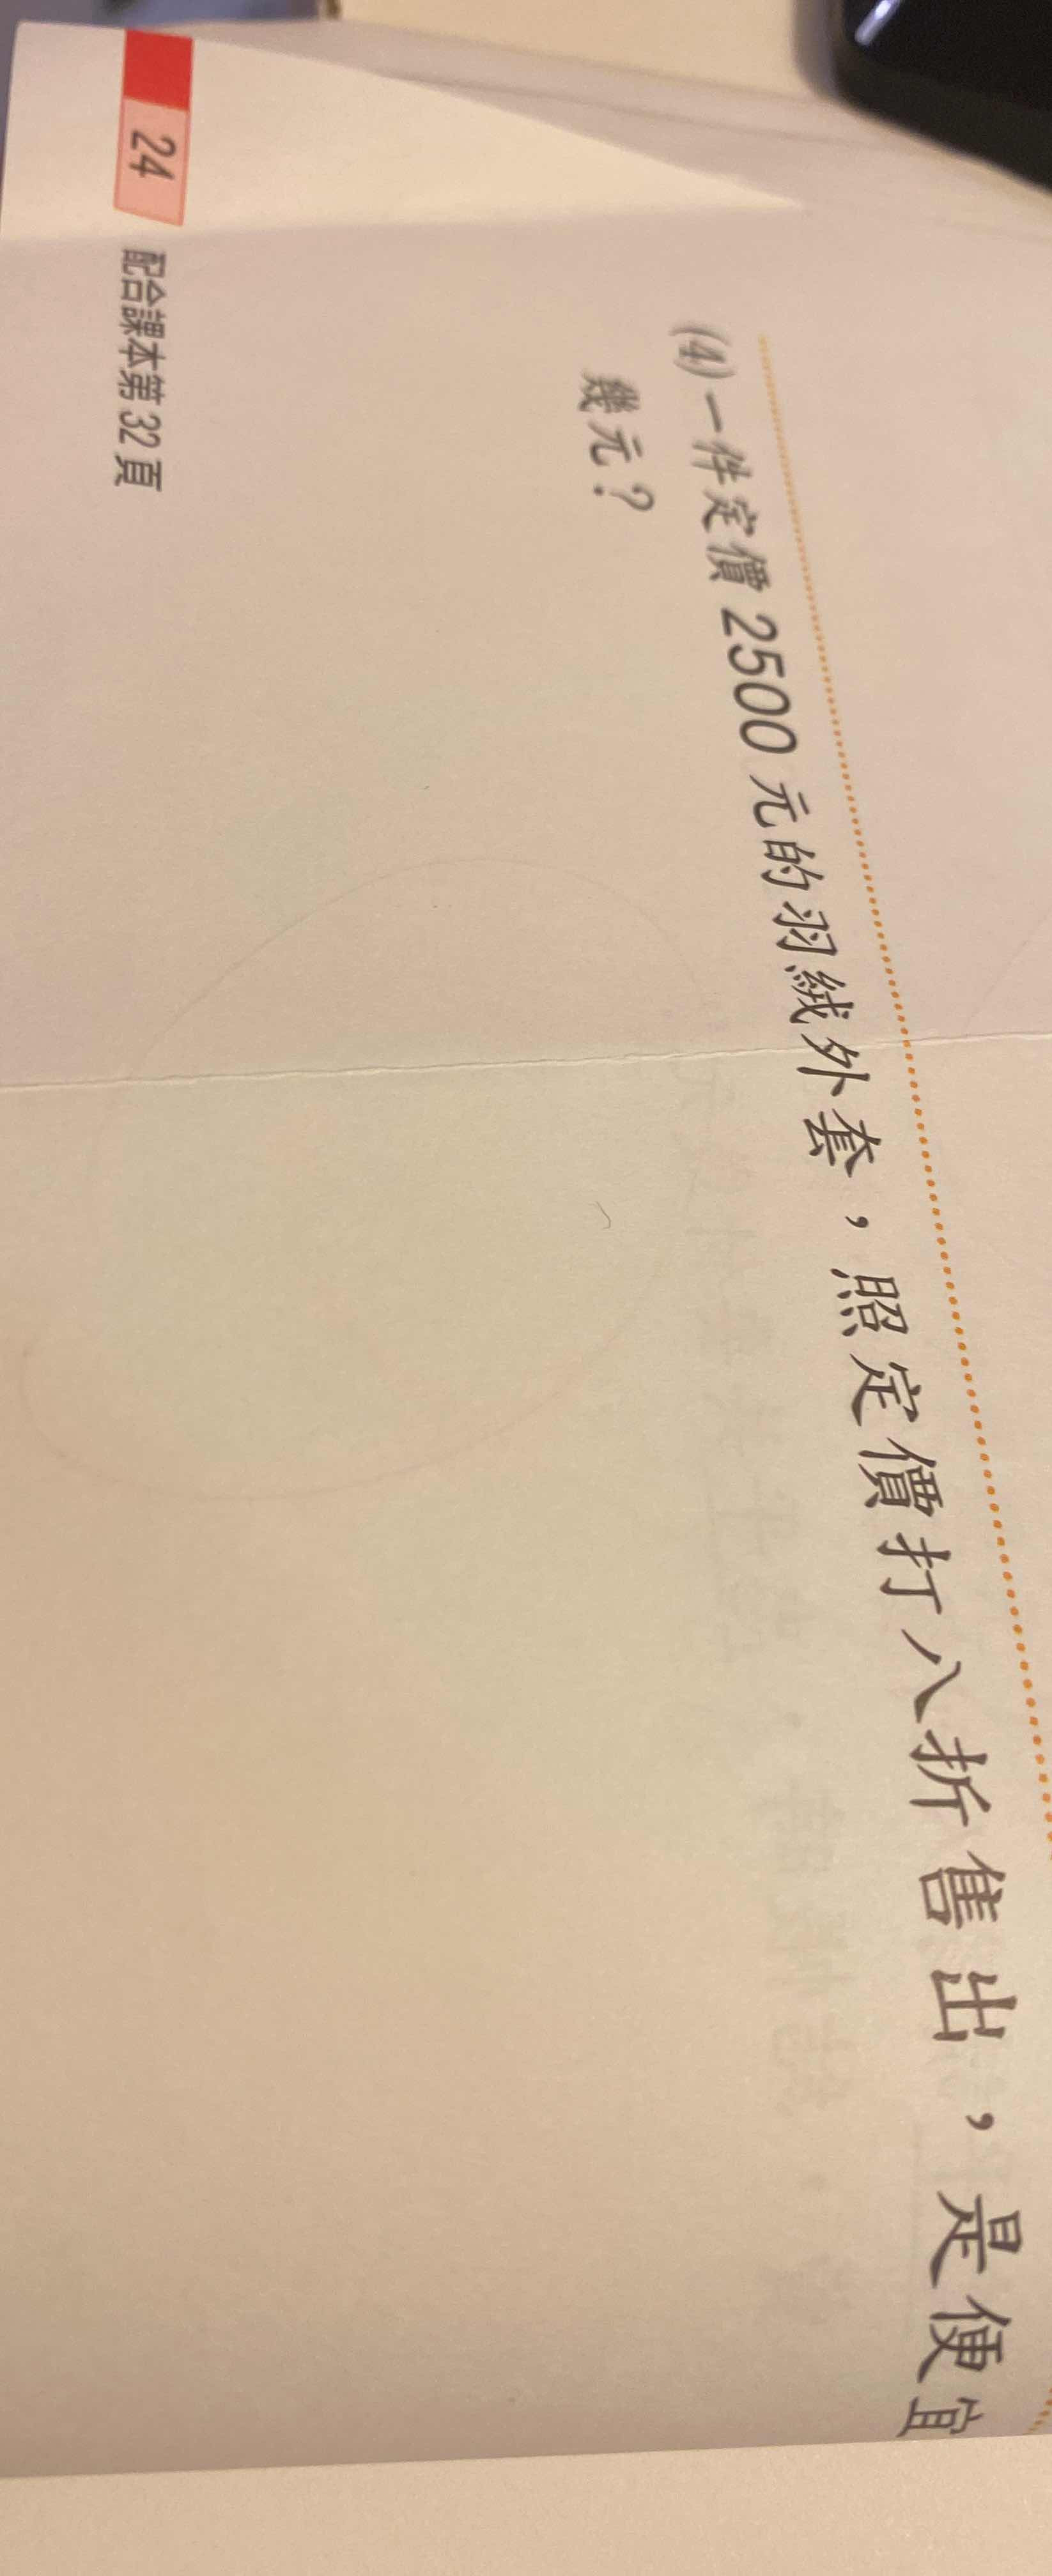 (4)一件定價2500元的羽絨外套，照定價打八折售出，是便宜
幾元？
24 配合課本第32頁